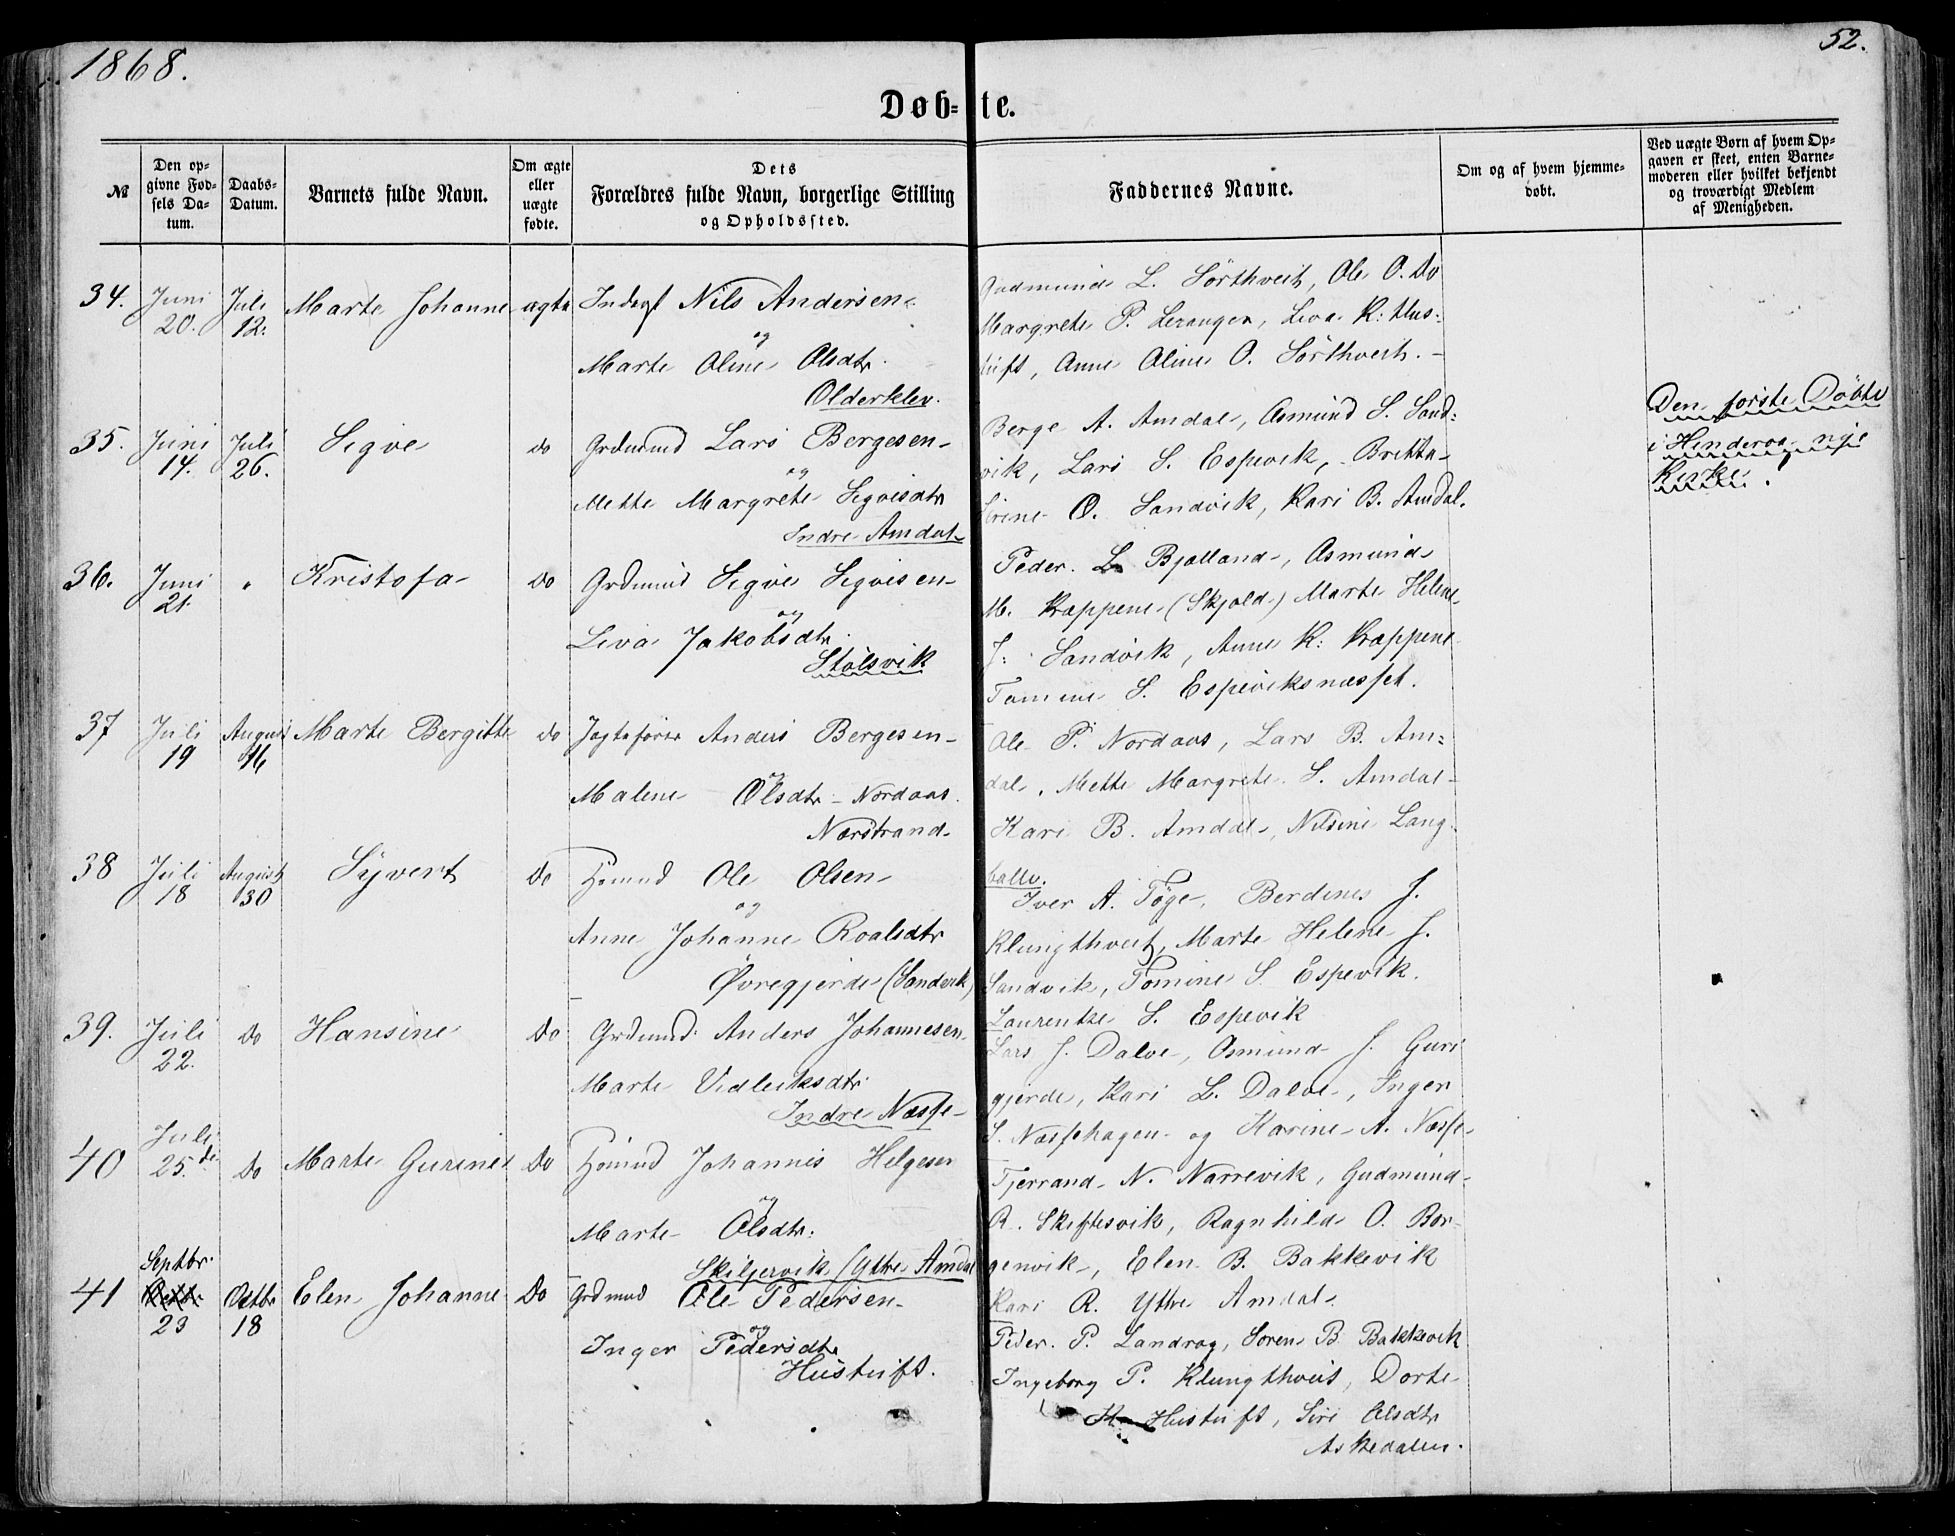 1868.
52.
Døb=te.
№
Den op=
givne Fød=
sels Da=
tum.
Daabs=
Datum.
Barnets fulde Navn.
Om ægte
eller
uægte
fødte.
Dets
Forældres fulde Navn, borgerlige Stilling
og Opholdssted.
Faddernes Navne.
Om og af hvem hjemme=
døbt.
Ved uægte Børn af hvem Op=
gaven er skeet, enten Barne=
moderen eller hvilket bekjendt
og troværdigt Medlem
af Menigheden.
34.
Juni
20.
Juli
12.
Marte Johanne
ægte
Inderst Nils Andersen
og
Marte Oline Olsdtr.
Olderklev.
Gudmund L. Sörthveit, Ole O. Do
Margrete P. Lerangen, Liva K. Hus:
tuft, Anne Oline O. Sörthveit.
35.
Juni
14.
Juli
26.
Segve
do
Grdmand Lars Bergesen
og
Mette Margrete Segvisdtr
Indre Amdal
Berge A. Amdal, Osmund S. Sand:
vik, Lars S. Espevik, Britta
Serine O. Sandvik, Kari B. Amdal.
Den förste Döbte
i Hinderaa nye
Kirke.
36.
Juni
21.
"
Kristofa
Do
Grdmand Segve Segvisen
og
Liva Jakobsdtr.
Stölsvik
Peder L. Bjelland, Osmund
M. Kappene (Skjold) Marte Helene
J. Sandvik, Anne K. Kappene
Tomine S. Espeviksnæsset.
37
Juli
19
August
16
Marte Bergitte
do
Jagtefører Anders Bergesen
og
Malene Olsdtr Nordaas.
Nærstrand
Ole P. Nordaas, Lars B. Am=
dal, Mette Margrete S. Amdal
Kari B. Amdal, Nilsine Lang
balle.
38
Juli
18
August
30
Syvert
Do
Hsmnd Ole Olsen
og
Anne Johanne Roalsdtr
Øvregjerde (Sandvik)
Iver A. Töge, Berdines J.
Klungthveit, Marte Helene J.
Sandvik, Tomine S. Espevik.
Laurentze S. Espevik
39.
Juli
22.
Do
Hansine
Do
Grdmnd Anders Johannesen
Marte Vidleiksdtr.
Indre Næsse
Lars J. Dalve, Osmund J. Guri
gjerde, Kari L. Dalve, Inger
S. Næssehagen og Karine A. Næsse
40
Juli
25.de
Do
Marte Gurine
Do
Hsmnd Johannes Helgesen
og
Marte Olsdtr.
Skiljervik (Ytre Amdal
Tjerrand N. Narrevik, Gudmund
R. Skeftesvik, Ragnhild O. Bor=
genvik, Elen B. Bakkevik
Kari R. Ytre Amdal.
41
Septbr.
23
Octbr
18
Elen Johanne
Do
Grdmnd Ole Pedersen
og
Inger Pedersdtr
Hustuft.
Peder P. Landrag, Soren B. Bakkevik
Ingeborg P. Klungthveit, Dorte
Hustuft, Siri Olsdtr
Askedalen.